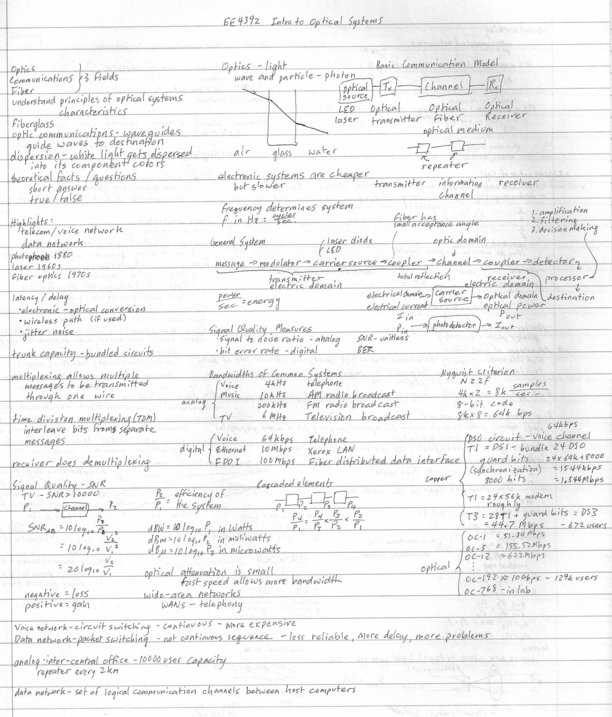 EE4392 Intro to Optical Systems
Optics
Communications } 3 fields
Fiber
understand principles of optical systems
characteristics
Fiberglass
optic communications - waveguides
guide waves to destination
dispersion - white light gets dispersed
into its component colors
theoretical facts / questions
short answer
true / false
Optics - light
wave and particle - photon
air glass water
electronic systems are cheaper
but slower
frequency determines system
f in Hz = cycles/sec.
Basic Communication Model
optical source → Tx → Channel → Rx
LED Optical Optical Optical
laser transmitter Fiber Receiver
optical medium
repeater
transmitter information receiver
channel
Fiber has
small acceptance angle
1. amplification
2. filtering
3. decision making
Highlights:
telecom/voice network
data network
photophone 1880
laser 1960s
fiber optics 1970s
General System
laser diode
LED
optic domain
message → modulator → carrier source → coupler → channel → coupler → detector
transmitter
electric domain
total reflection
receiver
electric domain
processor → destination
latency / delay
• electronic-optical conversion
• wireless path (if used)
• jitter noise
trunk capacity - bundled circuits
power/sec = energy
electrical domain → carrier source → Optical domain
electrical current optical power
I in P out
P in → photodetector → I out
Signal Quality Measures
• signal to noise ratio - analog SNR - unitless
• bit error rate - digital BER
multiplexing allows multiple
messages to be transmitted
through one wire
time division multiplexing (TDM)
interleave bits from separate
messages
receiver does demultiplexing
Bandwidths of Common Systems
analog
Voice 4kHz telephone
Music 10kHz AM radio broadcast
200kHz FM radio broadcast
TV 6MHz Television broadcast
digital
Voice 64kbps Telephone
Ethernet 10Mbps Xerox LAN
FDDI 100Mbps Fiber distributed data interface
Nyquist criterion
N ≥ 2f
4k×2 = 8k samples/sec
8-bit code
8k×8 = 64k bps
64kbps
copper
DS0 circuit - voice channel
T1 = DS1 - bundle 24 DS0
guard bits 24×64k+8000
(synchronization) = 1544kbps
8000 bits = 1.544Mbps
T1 = 24×56k modem
roughly
T3 = 28T1 + guard bits = DS3
= 44.7Mbps - 672 users
optical
OC-1 = 51.84Mbps
OC-3 = 155.52Mbps
OC-12 = 622Mbps
⋮
OC-192 ≈ 10Gbps - 129k users
OC-768 - in lab
Signal Quality - SNR
TV - SNR > 10000
P1 → Channel → P2
P2/P1 = efficiency of
the system
Cascaded elements
P1 P2 P3 P4
P4/P1 = P4/P3 × P3/P2 × P2/P1
SNR dB = 10 log10 P2/P1
= 10 log10 V2²/V1²
= 20 log10 V2/V1
negative = loss
positive = gain
dBW = 10 log10 P, in Watts
dBm = 10 log10 P, in miliwatts
dBμ = 10 log10 P, in microwatts
optical attenuation is small
fast speed allows more bandwidth
wide-area networks
WANs - telephony
Voice network - circuit switching - continuous - more expensive
Data network - packet switching - not continuous sequence - less reliable, more delay, more problems
analog - inter-central office - 10000 user capacity
repeater every 2km
data network - set of logical communication channels between host computers